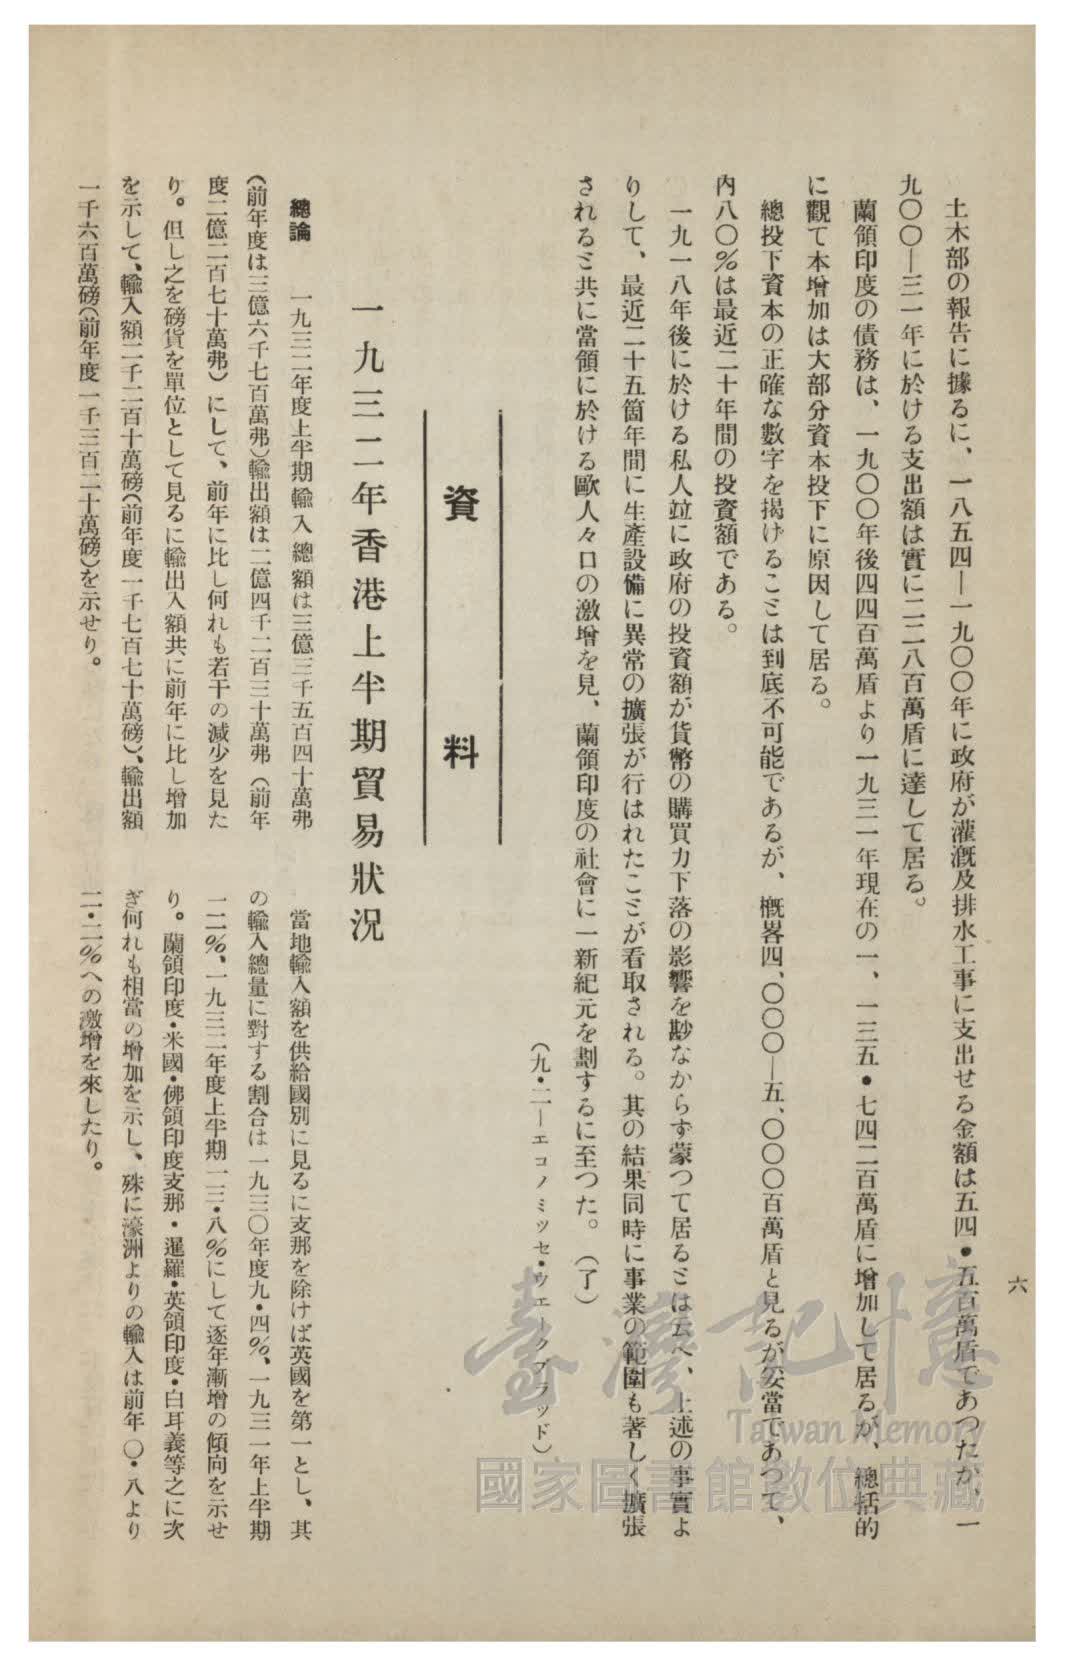 六
土木部の報告に據るに、一八五四―一九〇〇年に政府が灌漑及排水工事に支出せる金額は五四・五百萬盾であつたが、一
九〇〇―三一年に於ける支出額は實に二二八百萬盾に達して居る。
蘭領印度の債務は、一九〇〇年後四四百萬盾より一九三一年現在の一、一三五・七四二百萬盾に增加して居るが、總括的
に觀て本增加は大部分資本投下に原因して居る。
總投下資本の正確な數字を揭げることは到底不可能であるが、槪畧四、〇〇〇―五、〇〇〇百萬盾と見るが妥當であつて、
內八〇%は最近二十年間の投資額である。
一九一八年後に於ける私人竝に政府の投資額が貨幣の購買力下落の影響を尠なからず蒙つて居るとは云へ、上述の事實よ
りして、最近二十五箇年間に生產設備に異常の擴張が行はれたことが看取される。其の結果同時に事業の範圍も著しく擴張
されると共に當領に於ける歐人々口の激增を見、蘭領印度の社會に一新紀元を劃するに至つた。（了）
（九・二―エコノミツセ・ウエークブラツド）
資料
一九三二年香港上半期貿易狀況
總論　一九三二年度上半期輸入總額は三億三千五百四十萬弗
（前年度は三億六千七百萬弗）輸出額は二億四千二百三十萬弗（前年
度二億二百七十萬弗）にして、前年に比し何れも若干の減少を見た
り。但し之を磅貨を單位として見るに輸出入額共に前年に比し增加
を示して、輸入額二千二百十萬磅（前年度一千七百七十萬磅）、輸出額
一千六百萬磅（前年度一千三百二十萬磅）を示せり。
當地輸入額を供給國別に見るに支那を除けば英國を第一とし、其
の輸入總量に對する割合は一九三〇年度九・四%、一九三一年上半期
一二%、一九三二年度上半期一三・八%にして逐年漸增の傾向を示せ
り。蘭領印度・米國・佛領印度支那・暹羅・英領印度・白耳義等之に次
ぎ何れも相當の增加を示し、殊に濠洲よりの輸入は前年〇・八より
二・二%への激增を來したり。
臺灣記憶
Taiwan Memory
國家圖書館數位典藏